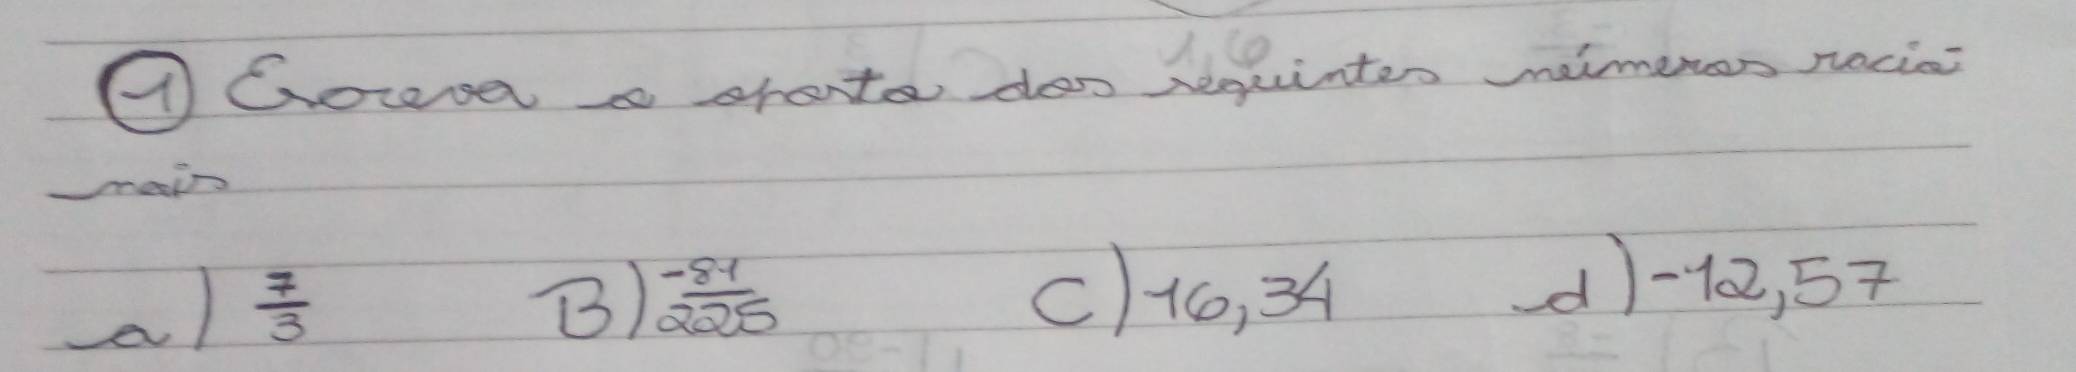 ① Escreva o oposto dos seguintes números racio-
nais
a) 7/3 B) -81/225 C) 16,34 d) -12,57